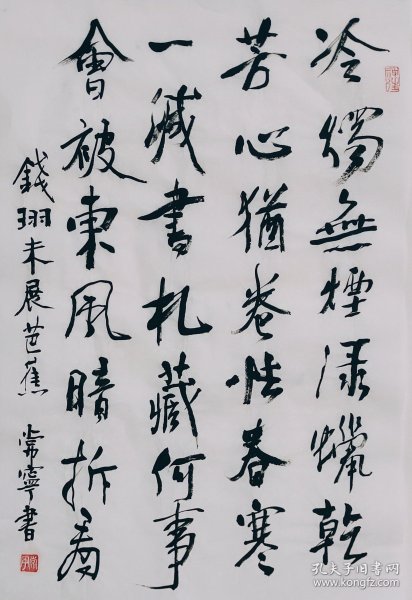 冷燭無煙綠蠟乾
芳心猶卷怯春寒
一緘書札藏何事
會被東風暗拆看
錢珝未展芭蕉 常寧書
孔夫子旧书网
www.kongfz.com